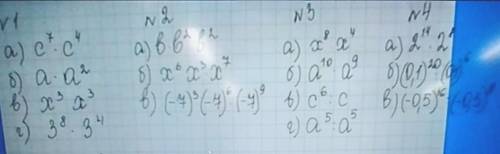 №1
а) c⁷ · c⁴
б) a · a²
в) x³ x³
г) 3⁸ · 3⁴
№2
а) b b² b²
б) x⁶ x³ x⁷
в) (-7)³ (-7)⁶ · (-7)⁹
№3
а) x⁸ x⁴
б) a¹⁰ : a⁹
в) c⁶ : c
г) a⁵ : a⁵
№4
а) 2¹⁴ : 2
б) (0,1)²⁰
в) (-0,5)¹⁶ : (-0,5)